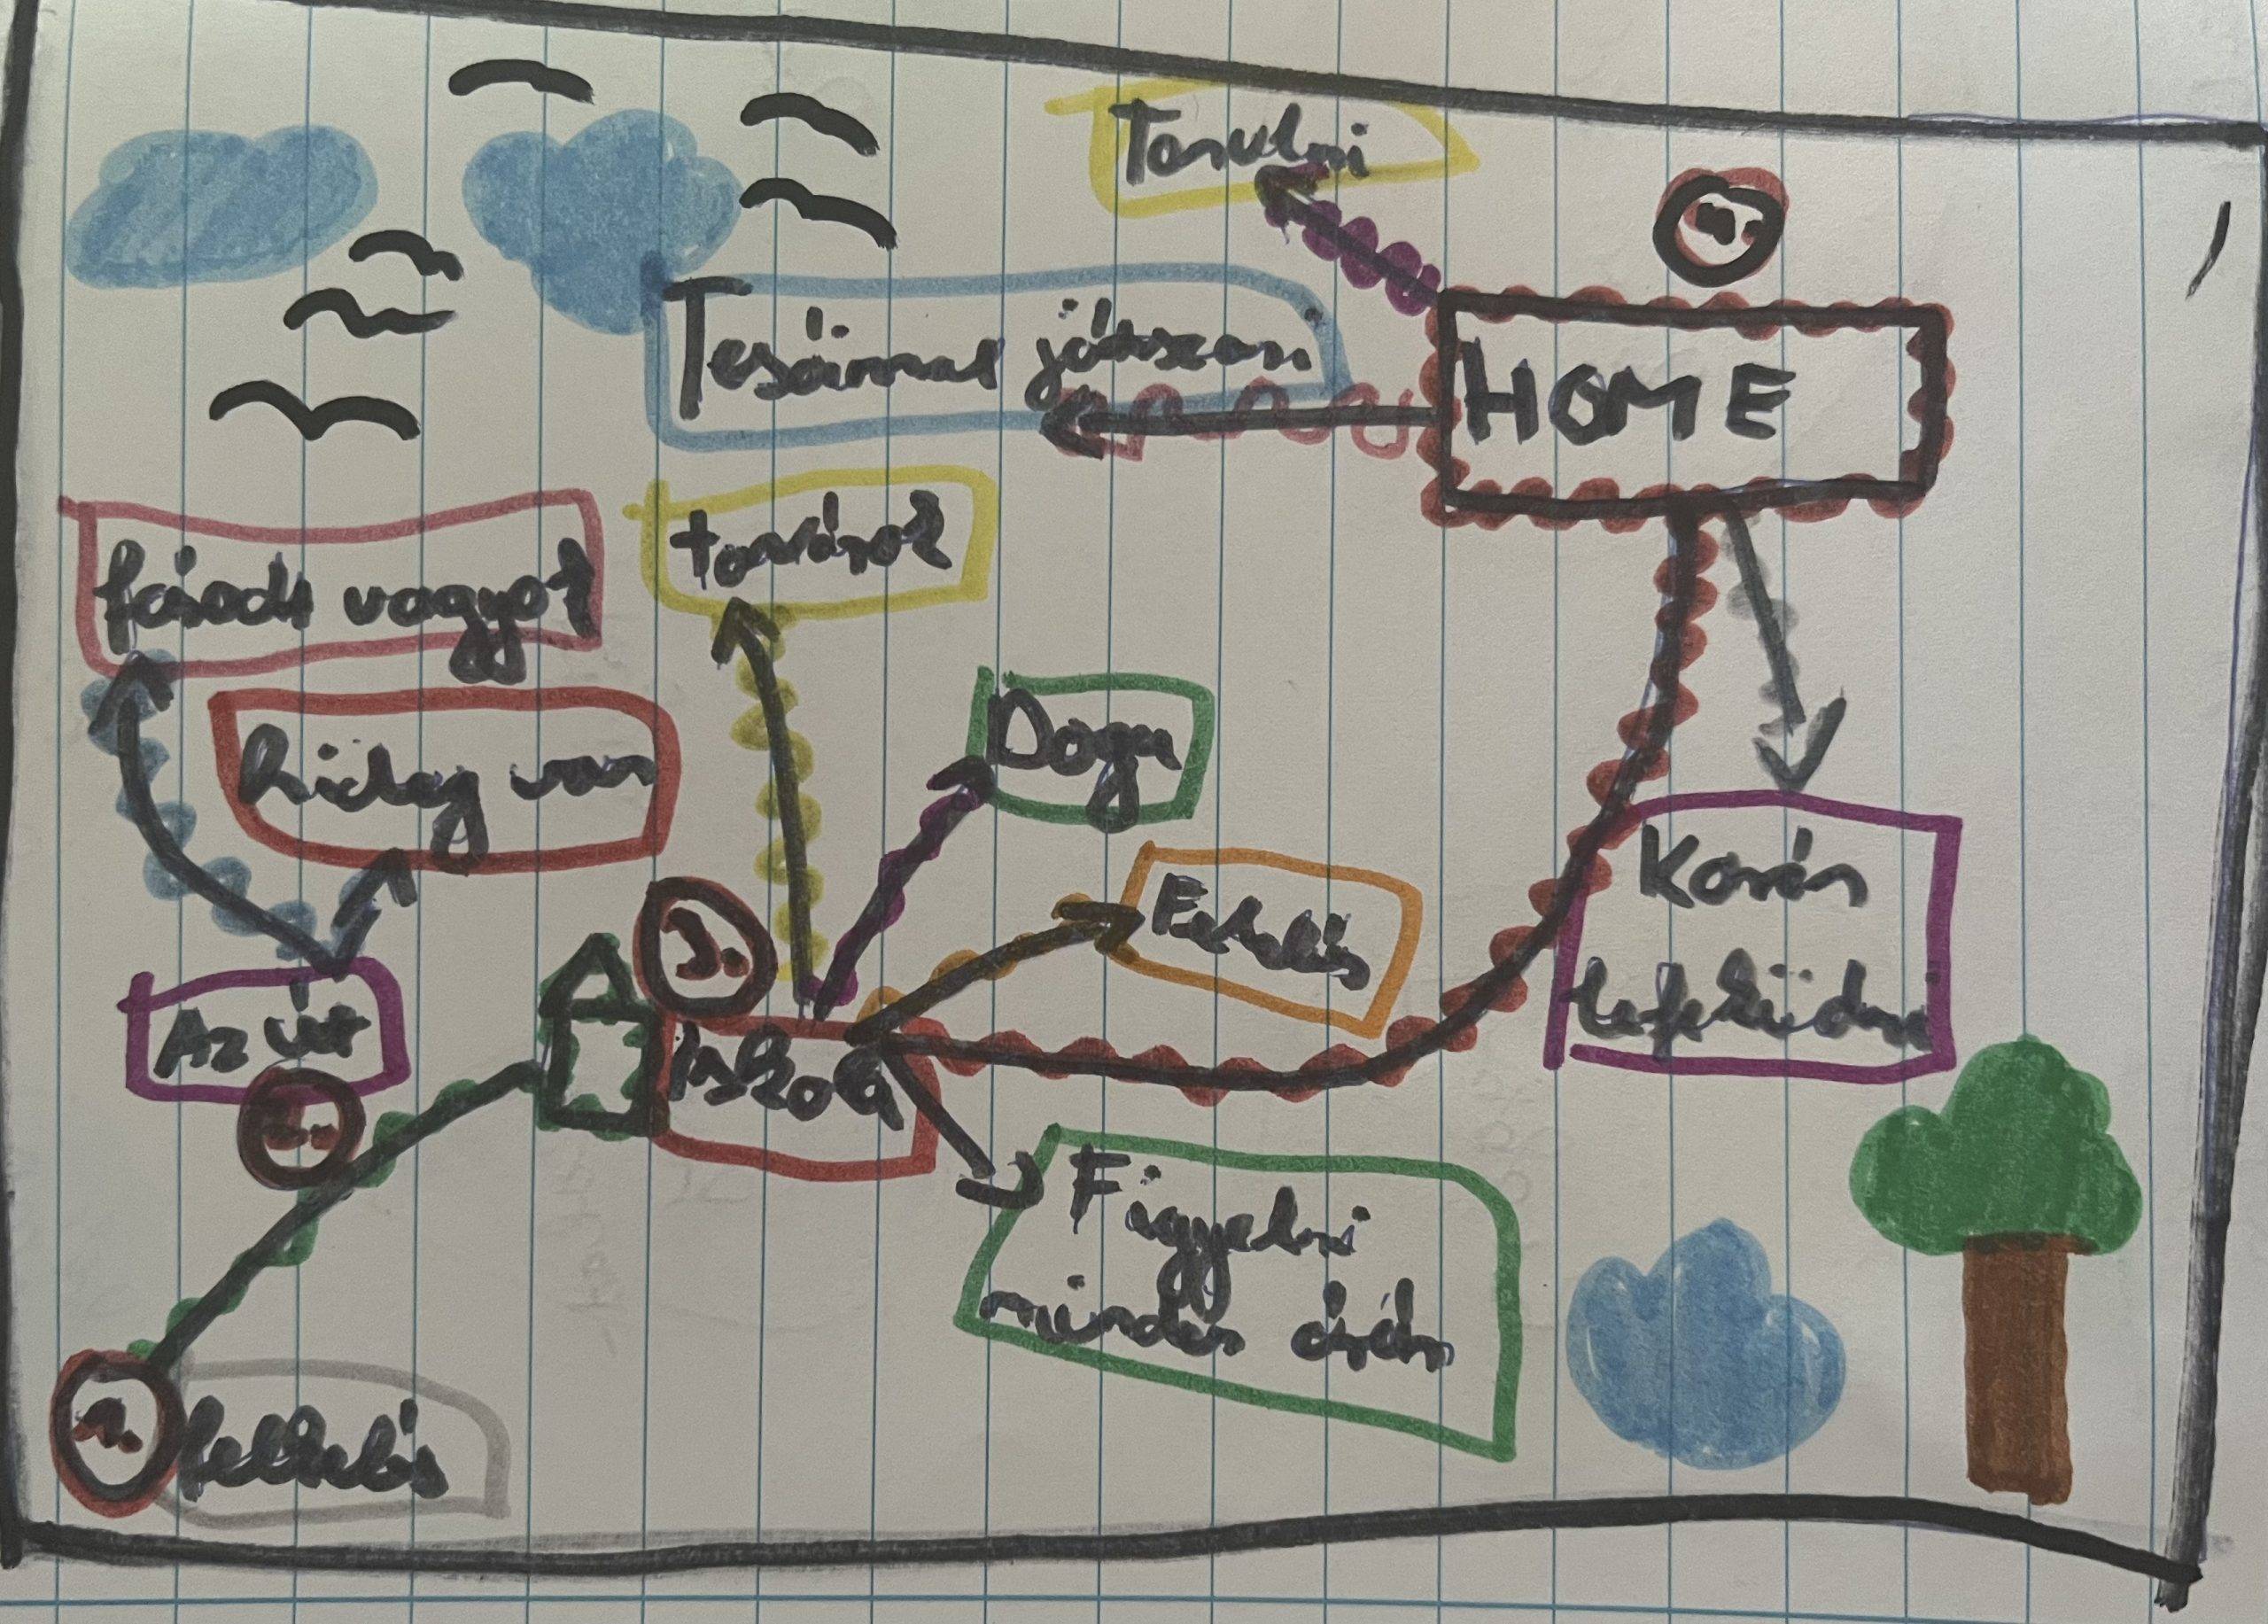 Tanulni
HOME
Tesóimmal játszani
fáradt vagyok
tanárok
hideg van
Doga
Felelés
Korán
lefeküdni
Az út
3.
Iskola
2.
Figyelni
minden órán
1.
felkelés